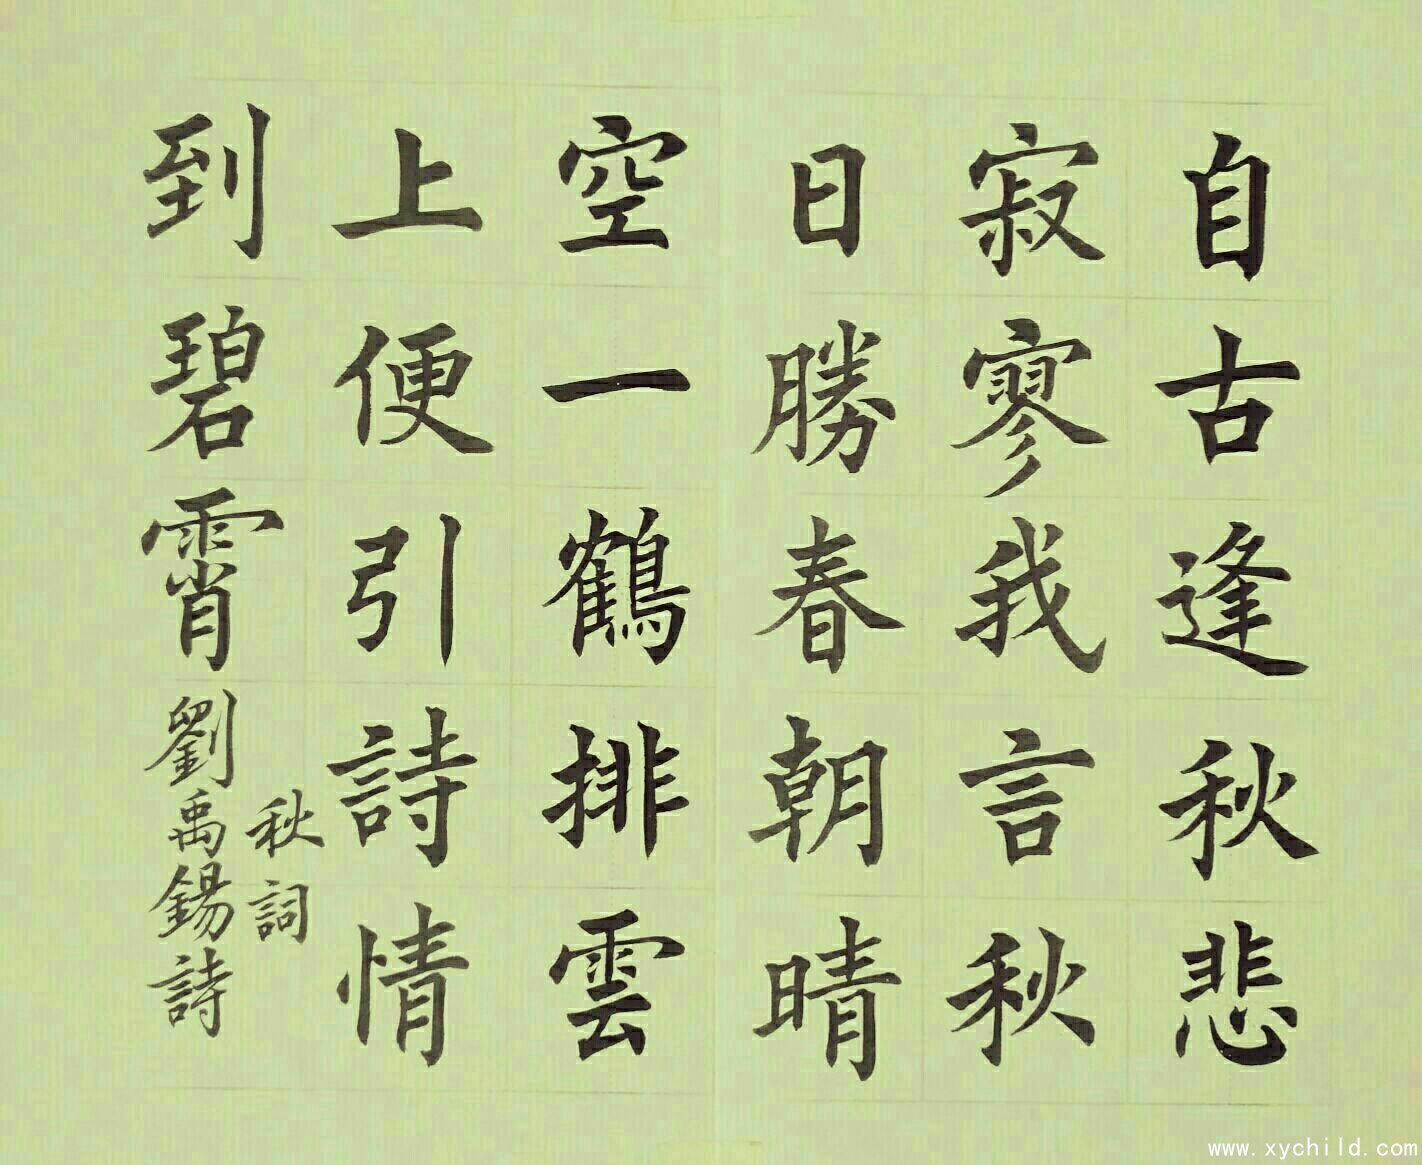 自古逢秋悲
寂寥我言秋
日勝春朝晴
空一鶴排雲
上便引詩情
到碧霄
秋詞
劉禹錫詩
www.xychild.com